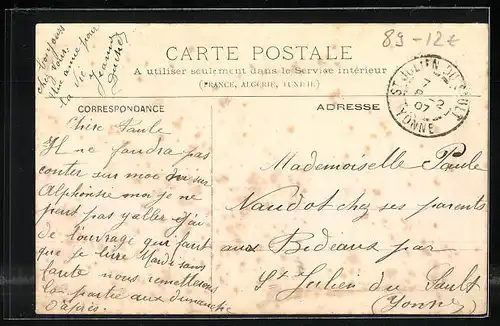 Bonjours
chez vous.
Une amie pour
la vie
Jeanne
CARTE POSTALE
A utiliser seulement dans le Service intérieur
(FRANCE, ALGÉRIE, TUNISIE)
89-12€
ST JULIEN-DU-SAULT
7
2
07
YONNE
CORRESPONDANCE
ADRESSE
Chère Paule
Il ne faudra pas
conter sur moi ni sur
Alphonsie moi je ne
peut pas y aller j'ai
de l'ouvrage qui faut
que je livre Mardi sans
faute nous remetterons
la partie aux dimanche
d'après.
Mademoiselle Paule
Naudot chez ses parents
aux Bedeaux par
St Julien du Sault
(Yonne)